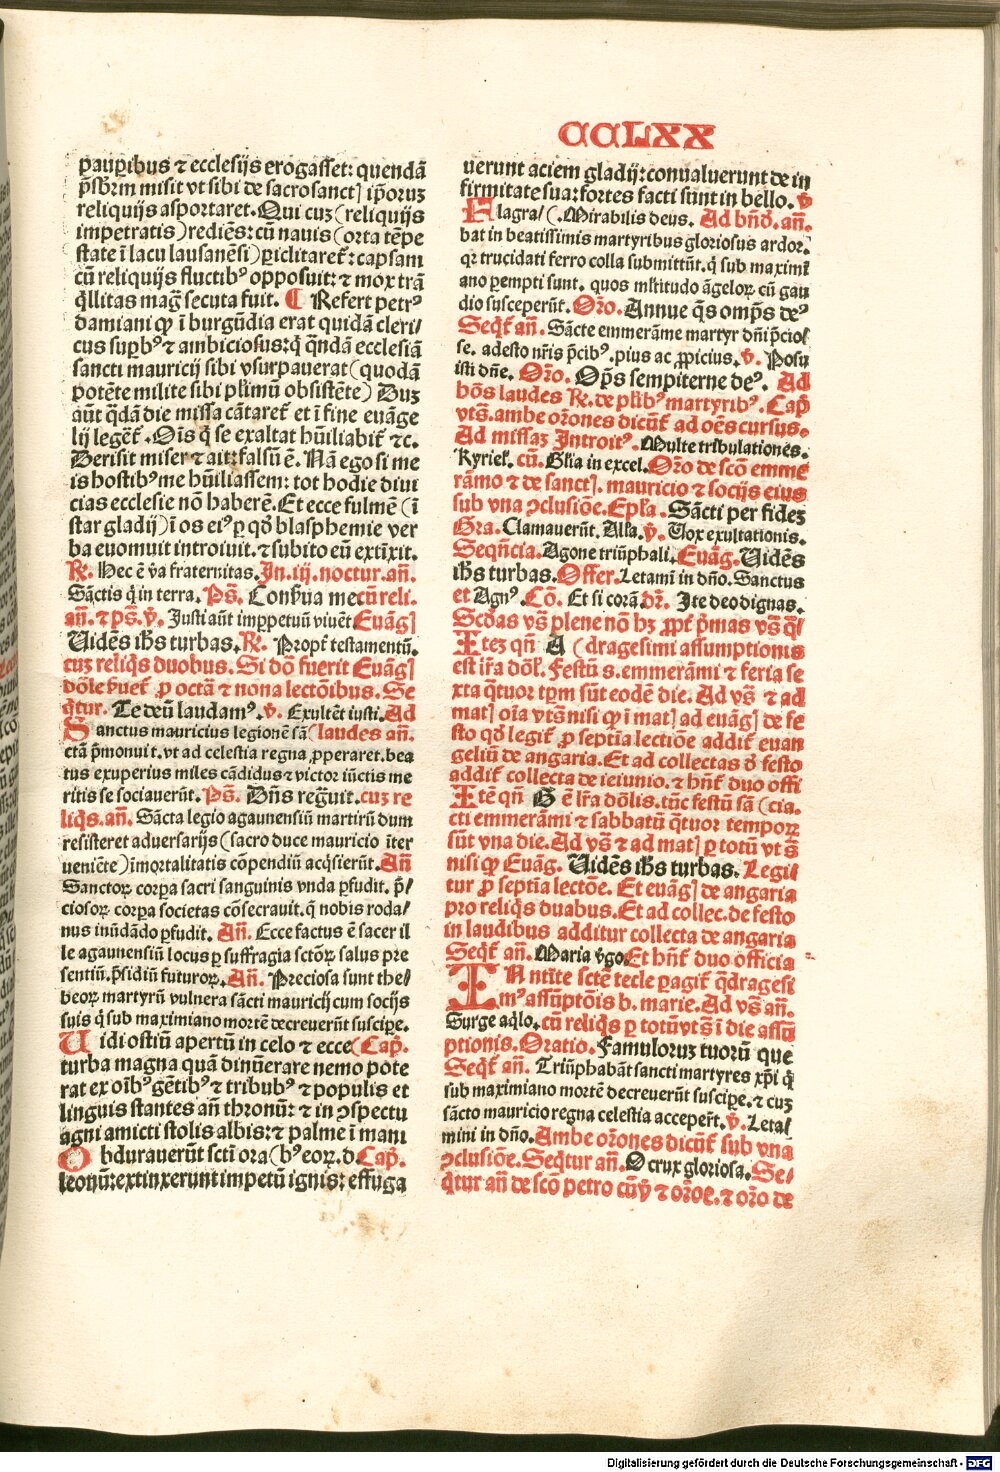 CCLXX
paup̲ibus ⁊ ecclesijs erogasset: quendā
p̄sb̄rm misit vt sibi de sacrosanctꝭ ip̄oruꝫ
reliquijs asportaret. Qui cuꝫ (reliquijs
impetratis) rediēs: cū nauis (orta tēpe
state ī lacu lausanēsi) ꝑiclitaret᷑: capsam
cū reliquijs fluctibꝰ opposuit: ⁊ mox trā
q̄llitas mag̃ secuta fuit. ¶ Refert petrꝰ
damiani ꝙ ī burgūdia erat quidā cleri/
cus suꝑbꝰ ⁊ ambiciosus: q̄ q̄ndā ecclesiā
sancti mauricij sibi vsurpauerat (quodā
potēte milite sibi pl̄imū obsistēte) Duꝫ
aūt q̄dā die missa cātaret᷑ et ī fine euāge
lij legēt᷑. Oīs q̄ se exaltat hūiliabit᷑ ⁊c.
Derisit miser ⁊ ait: falsū ē. Nā ego si me
is hostibꝰ me hūiliassem: tot hodie diui
cias ecclesie nō haberē. Et ecce fulmē (ī
star gladij) ī os eiꝰ ꝑ qd̄ blasphemie ver
ba euomuit introiuit. ⁊ subito eū extīxit.
℟. Hec ē v̄a fraternitas. In .iij. noctur. añ.
Sāctis q̄ in terra. Ps̄. Conẜua me cū reli.
añ. ⁊ ps̄. ℣. Justi aūt imꝑpetuū viuēt Euāgꝭ
Uidēs ih̄s turbas. ℟. Propt᷑ testamentū.
cuꝫ reliq̄s duobus. Si dō fuerit Euāgꝭ
dōle ẜuet᷑ ꝓ octā ⁊ nona lectōibus. Se
q̄tur. Te deū laudamꝰ. ℣. Exultēt iusti. Ad
Sanctus mauricius legionē sā (laudes añ.
ctā p̄monuit. vt ad celestia regna ꝓperaret. bea
tus exuperius miles cādidus ⁊ victor iūctis me
ritis se sociauerūt. Ps̄. Dn̄s reg̃uit. cuꝫ re
liq̄s. añ. Sācta legio agaunensiū martirū dum
resisteret aduersarijs (sacro duce mauricio īter
ueniēte) īmortalitatis cōpendiū acq̄sierūt. Añ
Sanctoꝝ corꝑa sacri sanguinis vnda ꝑfudit. p̄/
ciosoꝝ corꝑa societas cōsecrauit. q̄ nobis roda/
nus inūdādo ꝑfudit. Añ. Ecce factus ē sacer il
le agaunensiū locus ꝑ suffragia sctōꝝ salus pre
sentiū. p̄sidiū futuroꝝ. Añ. Preciosa sunt the/
beoꝝ martyrū vulnera sācti mauricij cum socijs
suis q̄ sub maximiano mortē decreuerūt suscipe.
Uidi ostiū apertū in celo ⁊ ecce (Cap̄.
turba magna quā dinūerare nemo pote
rat ex oībꝰ gētibꝰ ⁊ tribubꝰ ⁊ populis et
linguis stantes añ thronū: ⁊ in ꝯspectu
agni amicti stolis albis: ⁊ palme ī mani
Obdurauerūt sctī ora (bꝰ eoꝝ. d. Cap̄.
leonū: extinxerunt impetū ignis: effuga
uerunt aciem gladij: conualuerunt de in
firmitate sua: fortes facti sunt in bello. ℣
Flagra/ (. Mirabilis deus. Ad bn̄d. añ.
bat in beatissimis martyribus gloriosus ardor.
qꝛ trucidati ferro colla submittūt. q̄ sub maximi
ano ꝑempti sunt. quos mltitudo āgeloꝝ cū gau
dio susceperūt. Oro. Annue q̄s omp̄s deꝰ
Seqt᷑ añ. Sācte emmerāme martyr dn̄i p̄cio/
se. adesto nr̄is p̄cibꝰ. pius ac ꝓpicius. ℣. Posu
isti dn̄e. Oro. Op̄s sempiterne deꝰ. Ad
hōs laudes ℟. de pl̄ibꝰ martyribꝰ. Cap̄
vts̄. ambe orōnes dicūt᷑ ad oēs cursus.
Ad missaꝫ Introitꝰ. Multe tribulationes.
Kyriel̄. cū. Gl̄ia in excel. Oro de scō emme
rāmo ⁊ de sanctꝭ. mauricio ⁊ socijs eius
sub vna ꝯclusiōe. Epl̄a. Sācti per fideꝫ
Gra. Clamauerūt. All̄a. ℣. Vox exultationis.
Seqn̄cia. Agone triūphali. Euāg. Uidēs
ih̄s turbas. Offer. Letamī in dn̄o. Sanctus
et Agnꝰ. Cō. Et si corā. d̄r. Ite deo dignas.
Scd̄as vs̄ plene nō hꝫ ꝓpt᷑ p̄mas vs̄ q̄/
Iteꝫ qn̄ A (dragesimi assumptionis
est lr̄a dōl̄. Festū s. emmerāmi ⁊ feria se
xta q̄tuor tꝑm sūt eodē die. Ad vs̄ ⁊ ad
matꝭ oīa vts̄ nisi ꝙ ī matꝭ ad euāgꝭ de fe
sto qd̄ legit᷑ ꝓ septīa lectiōe addit᷑ euan
geliū de angaria. Et ad collectas d̄ festo
addit᷑ collecta de ieiunio. ⁊ hn̄t᷑ duo offi
Itē qn̄ G ē lr̄a dōlis. tūc festū sā (cia.
cti emmerāmi ⁊ sabbatū q̄tuor temporꝝ
sūt vna die. Ad vs̄ ⁊ ad matꝭ ꝑ totū vt s̄
nisi ꝙ Euāg. Uidēs ih̄s turbas. Legi/
tur ꝓ septīa lectōe. Et euāgꝭ de angaria
pro reliq̄s duabus. Et ad collec. de festo
in laudibus additur collecta de angaria
Seqt᷑ añ. Maria v̄go. Et hn̄t᷑ duo officia
IN nt̄ite sctē tecle ꝑagit᷑ q̄dragesi
mꝰ assūptōis b. marie. Ad vs̄ añ.
Surge aq̄lo. cū reliq̄s ꝑ totū vt s̄ ī die assū
ptionis. Oratio. Famuloruꝫ tuorū que
Seqt᷑ añ. Triūphabāt sancti martyres xp̄i q̄
sub maximiano mortē decreuerūt suscipe. ⁊ cuꝫ
sācto mauricio regna celestia acceper̄t. ℣. Leta/
mini in dn̄o. Ambe orōnes dicūt᷑ sub vna
ꝯclusiōe. Seqtur añ. O crux gloriosa. Se/
q̄tur añ de scō petro cū ℣ ⁊ orōe. ⁊ orō de
Digitalisierung gefördert durch die Deutsche Forschungsgemeinschaft - DFG